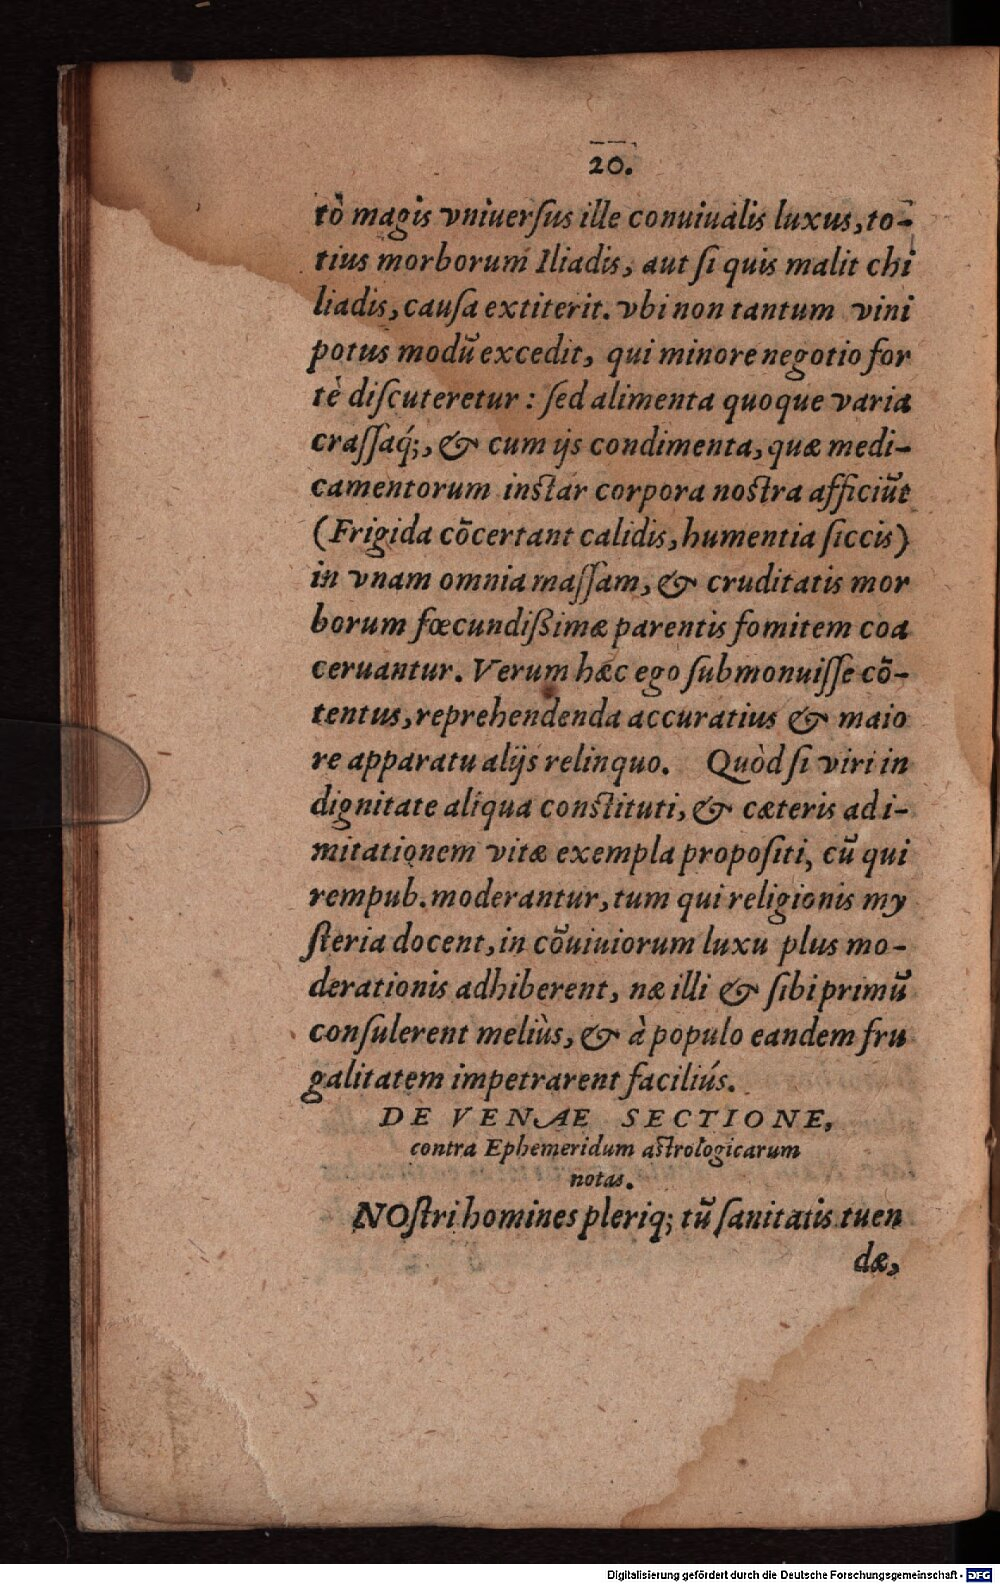 20.
tò magis vniuerſus ille conuiualis luxus, to-
tius morborum Iliadis, aut ſi quis malit chi
liadis, cauſa extiterit. vbi non tantum vini
potus modū excedit, qui minore negotio for
tè diſcuteretur : ſed alimenta quoque varia
craſſaq́;, & cum ijs condimenta, quæ medi-
camentorum inſtar corpora noſtra afficiūt
(Frigida cōcertant calidis, humentia ſiccis)
in vnam omnia maſſam, & cruditatis mor
borum fœcundißimæ parentis fomitem coa
ceruantur. Verum hæc ego ſubmonuiſſe cō-
tentus, reprehendenda accuratius & maio
re apparatu alijs relinquo. Quòd ſi viri in
dignitate aliqua conſtituti, & cæteris ad i-
mitationem vitæ exempla propoſiti, cū qui
rempub. moderantur, tum qui religionis my
ſteria docent, in cōuiuiorum luxu plus mo-
derationis adhiberent, næ illi & ſibi primū
conſulerent meliùs, & à populo eandem fru
galitatem impetrarent faciliús.
DE VENAE SECTIONE,
contra Ephemeridum aſtrologicarum
notas.
NOſtri homines pleriq; tū ſanitatis tuen
dæ,
Digitalisierung gefördert durch die Deutsche Forschungsgemeinschaft - DFG